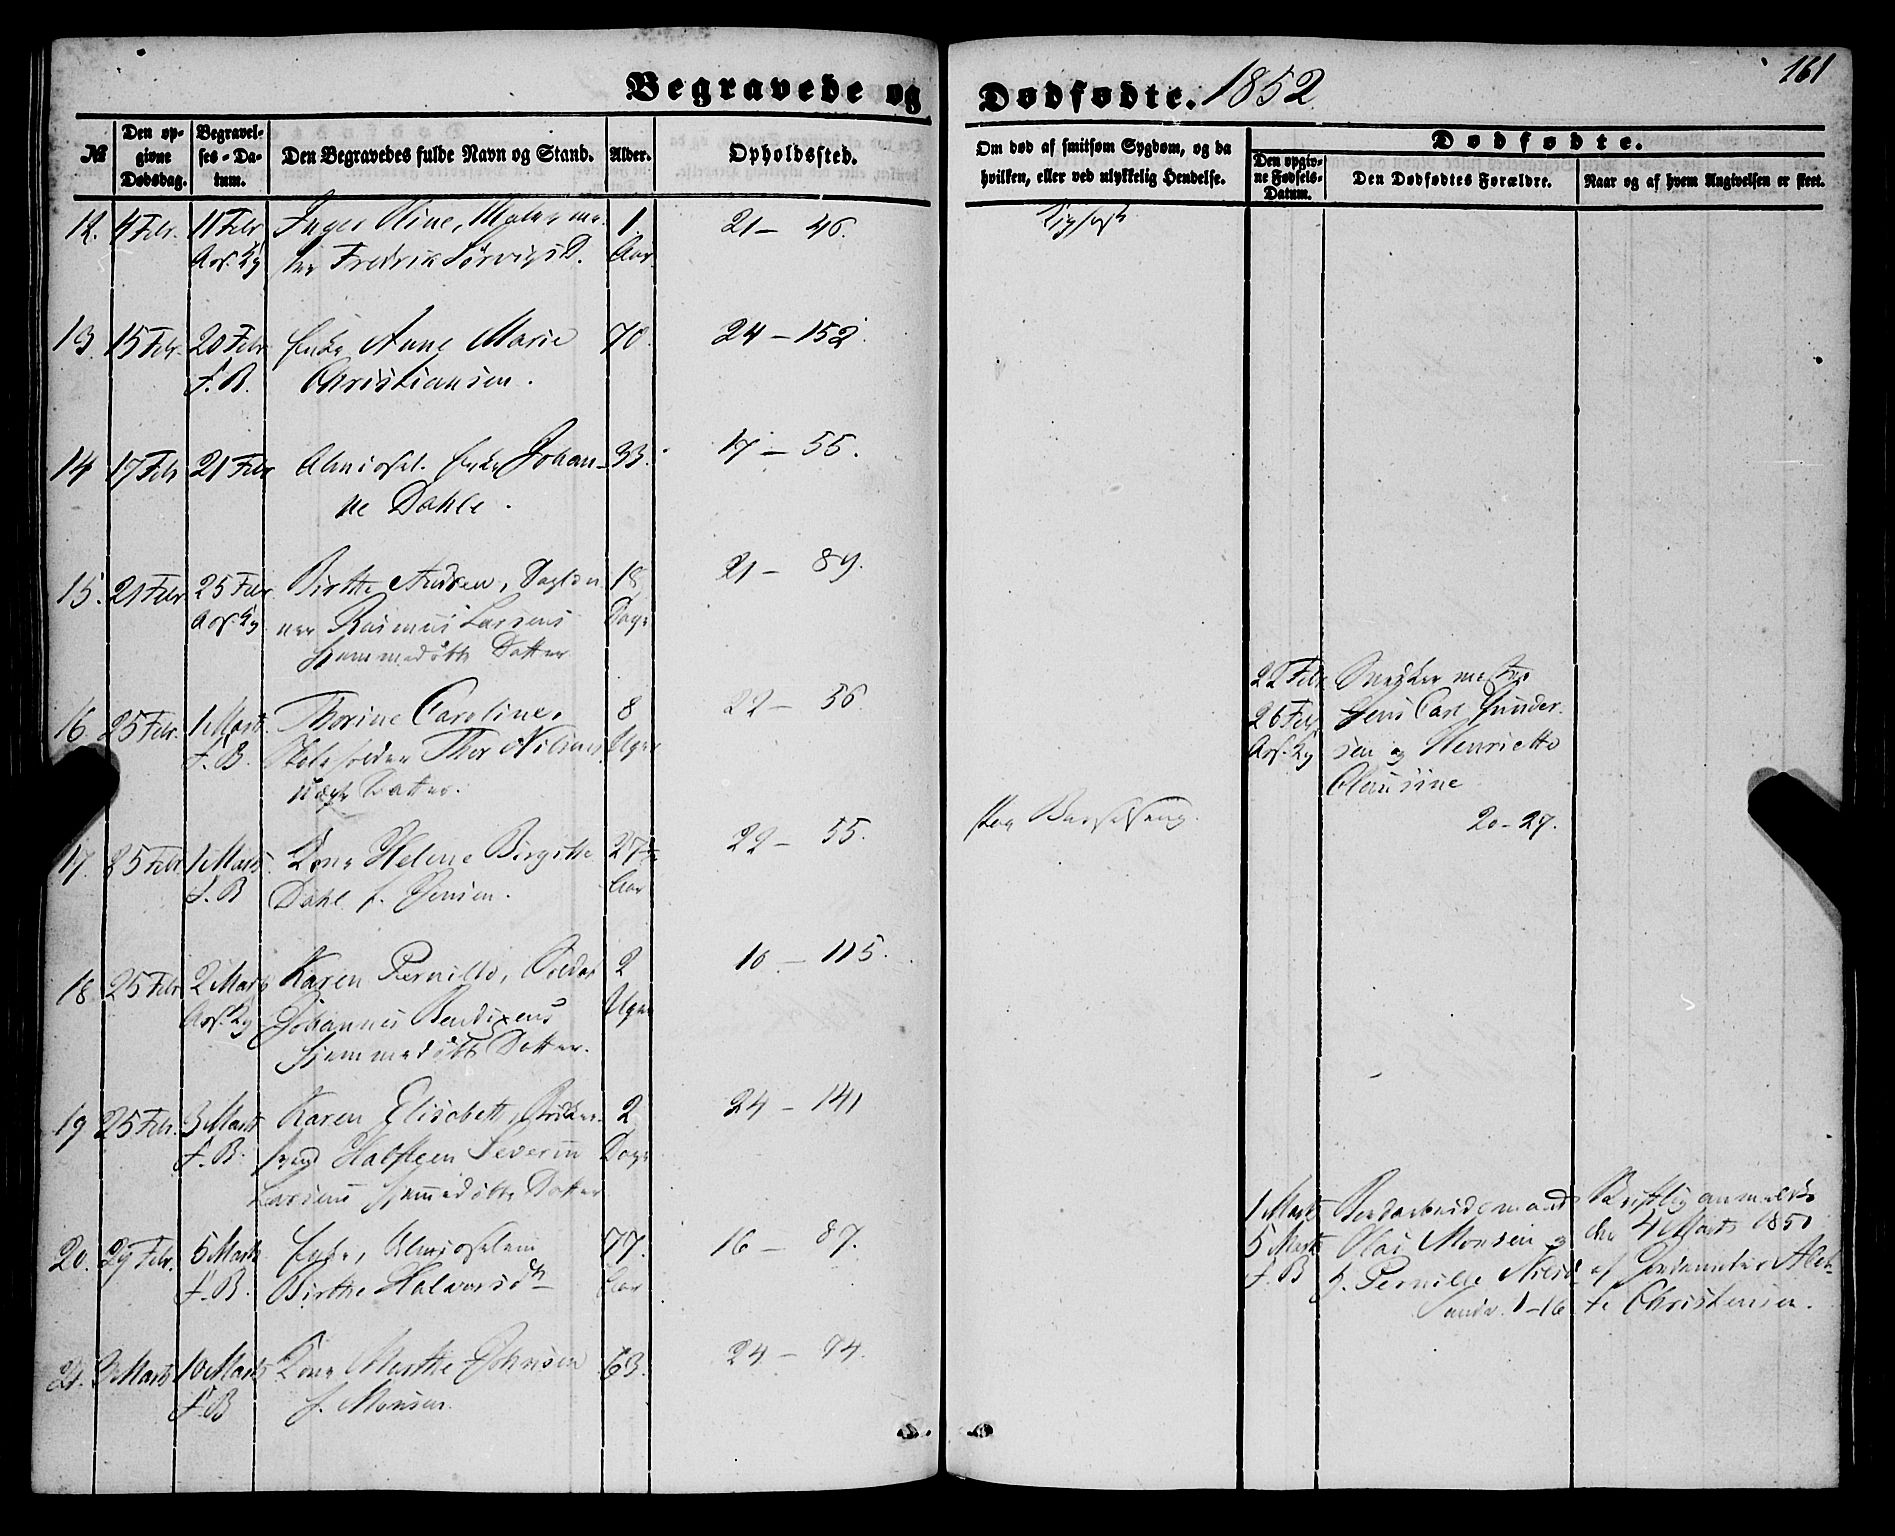 Begravede og
Dødfødte. 1852
161
№
Den opgivne Dødsdag.
Begravelses-Datum.
Den Begravedes fulde Navn og Stand.
Alder.
Opholdssted.
Om død af smitsom Sygdom, og da hvilken, eller ved ulykkelig Hendelse.
Dødfødte.
Den opgivne Fødsels-Datum.
Den Dødfødtes Forældre.
Naar og af hvem Angivelsen er skeet.
12. 4 Febr. 11 Febr. Inger Oline, 1 21 - 46.
Ass. Kg Fredrik Sørvigs D. Aar
13. 15 Febr. 20 Febr Enke Anne Marie 70. 24 - 152.
F. B. Christiansen.
14 17 Febr 21 Febr Almissel. Enke Johan- 93. 17 - 55.
ne Dahle.
15. 21 Febr 25 Febr Birthe Andrea, Dagløn- 18 21 - 89.
Ass. Kg ner Rasmus Larsens Dage
hjemmedøbte Datter
22 Febr Snedker
16. 25 Febr. 1 Marts. Thorine Caroline, 8 22 - 56.
26 Febr Jens Carl Gunder-
F. B. Skoleholder Thor Nilsens Uger
Ass. Kg sen og Henriette
uægte Datter.
Clausine
20-27.
17. 25 Febr 1 Marts. Kone Helene Birgitte 27 22 - 55. Barselseng.
F. B Dahl f. Jensen. Aar
18. 25 Febr 2 Marts Karen Pernille, Soldat 2 16 - 115.
Ass. Kg Johannes Bendixens Uger
hjemmedøbte Datter.
19 25 Febr. 3 Marts Karen Elisabeth, 2 24 - 141
F. B. svend Halsteen Severin Dage
Larsens hjemmedøbte Datter
1 Marts Bordarbeidsmand Skriftlig anmeldt
20. 29 Febr. 5 Marts Enke, Almisselem 77. 16 - 87.
den 4 Marts 1851
5 Marts Monsen og
F. B. Birthe Halvorsd. Aar
F. B H. Pernille Nilsd. af Jordemoder Alet-
1-16 te Christensen.
21. 3 Marts 10 Marts Kone Marthe Johnsen 63. 24 - 94.
F. B f. Monsen.